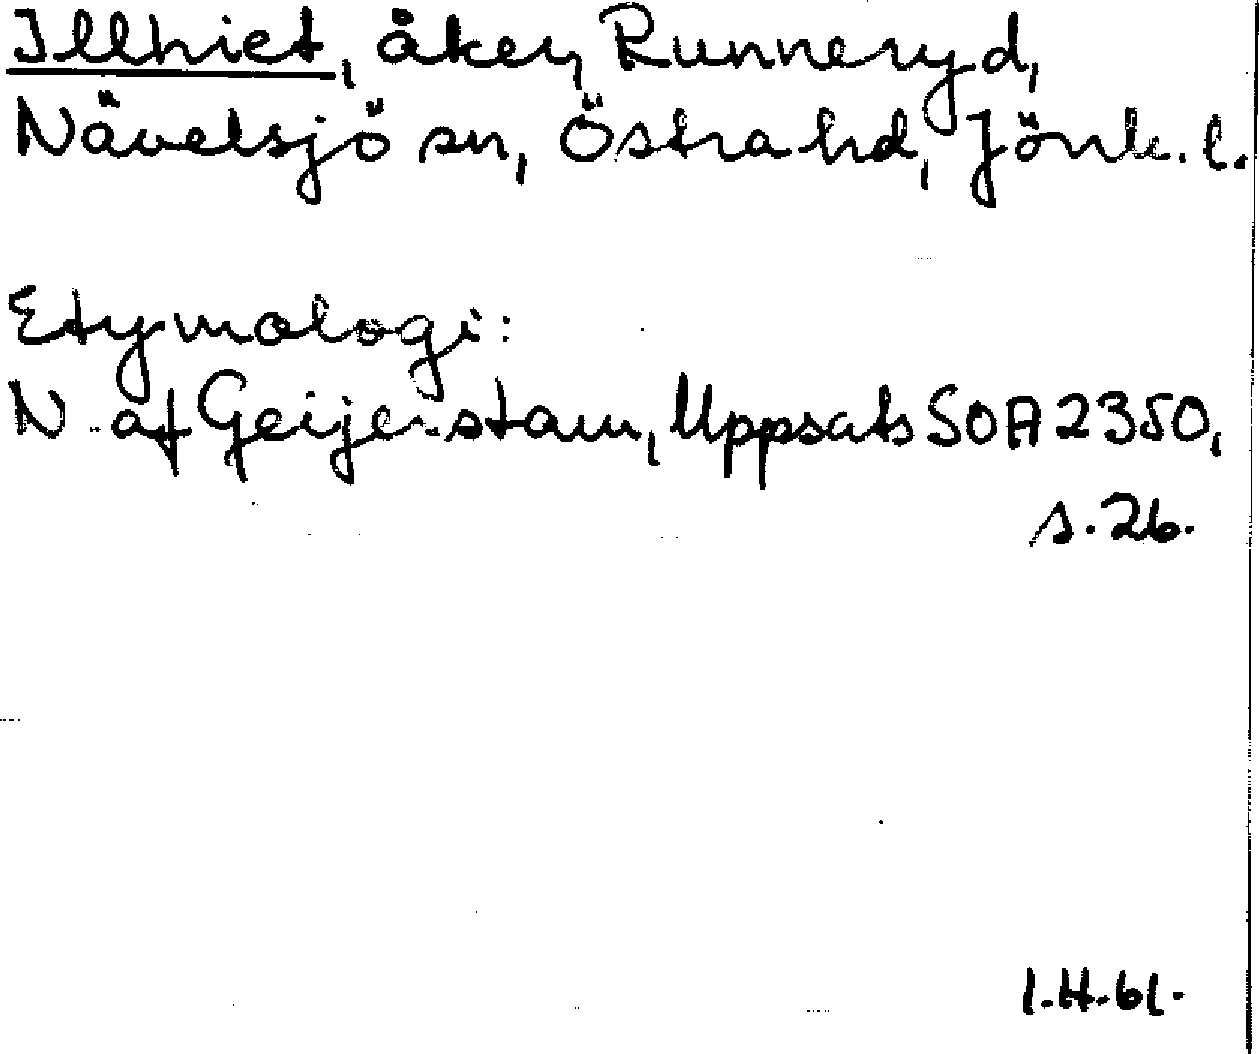 Illhiet, åker, Runneryd,
Nävelsjö sn, Östra hd, Jönk. l.
Etymologi:
N. af Geijerstam, Uppsats SOA 2350,
s. 26.
I.H.61.